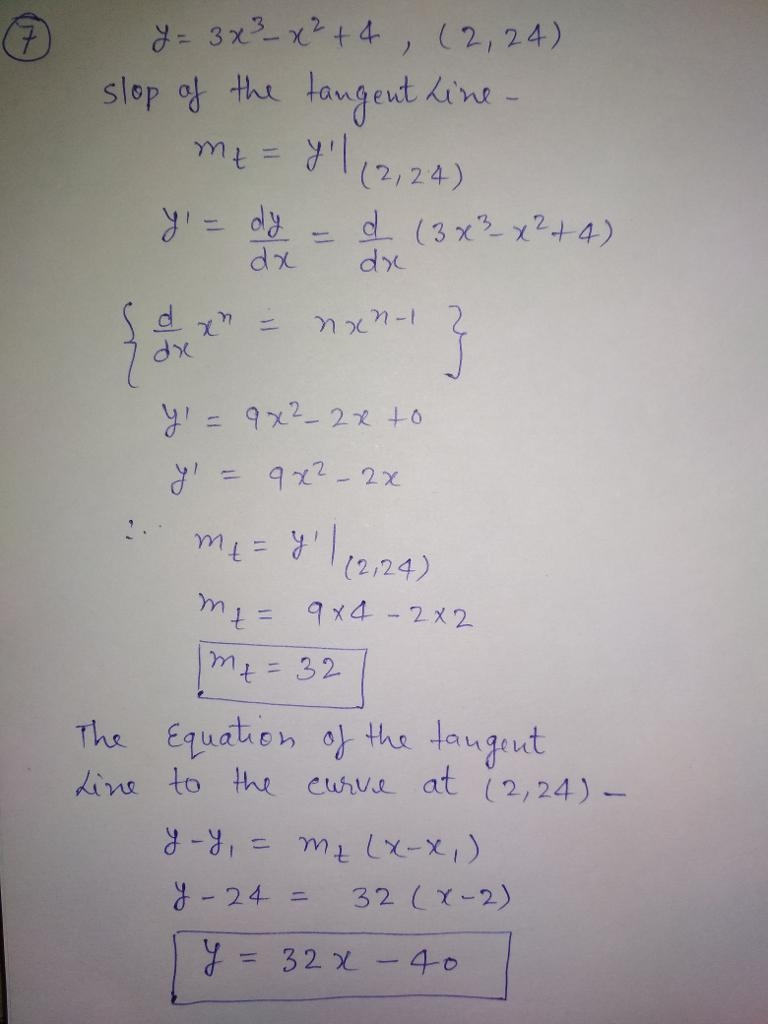 ⑦ y = 3x³ - x² + 4 , (2,24)
slop of the tangent Line -
m_t = y'|(2,24)
y' = dy/dx = d/dx (3x³ - x² + 4)
{ d/dx xⁿ = nxⁿ⁻¹ }
y' = 9x² - 2x + 0
y' = 9x² - 2x
∴ m_t = y'|(2,24)
m_t = 9×4 - 2×2
m_t = 32
The Equation of the tangent
Line to the curve at (2,24) -
y - y₁ = m_t (x - x₁)
y - 24 = 32 (x - 2)
y = 32x - 40